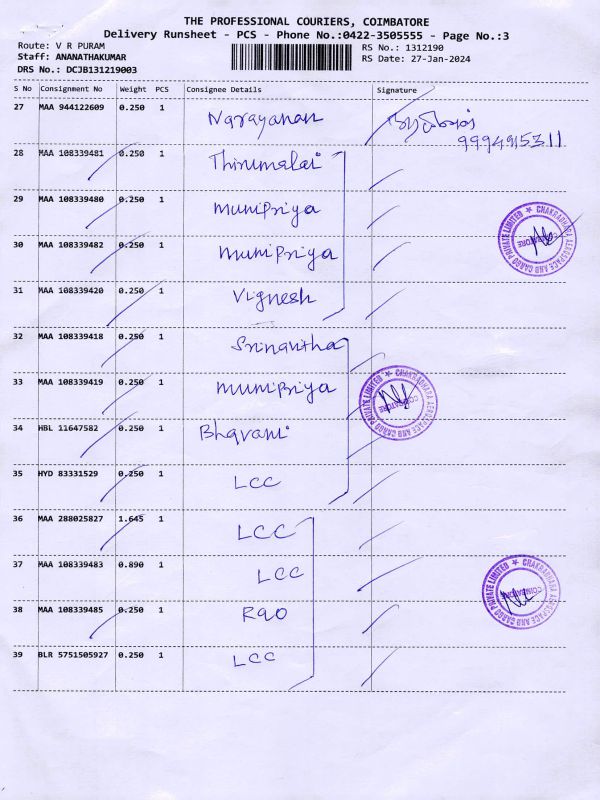 THE PROFESSIONAL COURIERS, COIMBATORE
Delivery Runsheet - PCS - Phone No.:0422-3505555 - Page No.:3
Route: V R PURAM
RS No.: 1312190
Staff: ANANATHAKUMAR
RS Date: 27-Jan-2024
DRS No.: DCJB131219003
S No Consignment No Weight PCS Consignee Details Signature
27 MAA 944122609 0.250 1 Narayanan
9994915311
28 MAA 108339481 0.250 1 Thirumalai
29 MAA 108339480 0.250 1 Munipriya
30 MAA 108339482 0.250 1 Munipriya
CHAKRADHARA AEROSPACE AND CARGO PRIVATE LIMITED ★ COIMBATORE
31 MAA 108339420 0.250 1 Vignesh
32 MAA 108339418 0.250 1 Srinavitha
33 MAA 108339419 0.250 1 Munipriya
CHAKRADHARA AEROSPACE AND CARGO PRIVATE LIMITED ★ COIMBATORE
34 HBL 11647582 0.250 1 Bhavani
35 HYD 83331529 0.250 1 LCC
36 MAA 288025827 1.645 1 LCC
37 MAA 108339483 0.890 1 LCC
CHAKRADHARA AEROSPACE AND CARGO PRIVATE LIMITED ★ COIMBATORE
38 MAA 108339485 0.250 1 Rao
39 BLR 5751505927 0.250 1 LCC